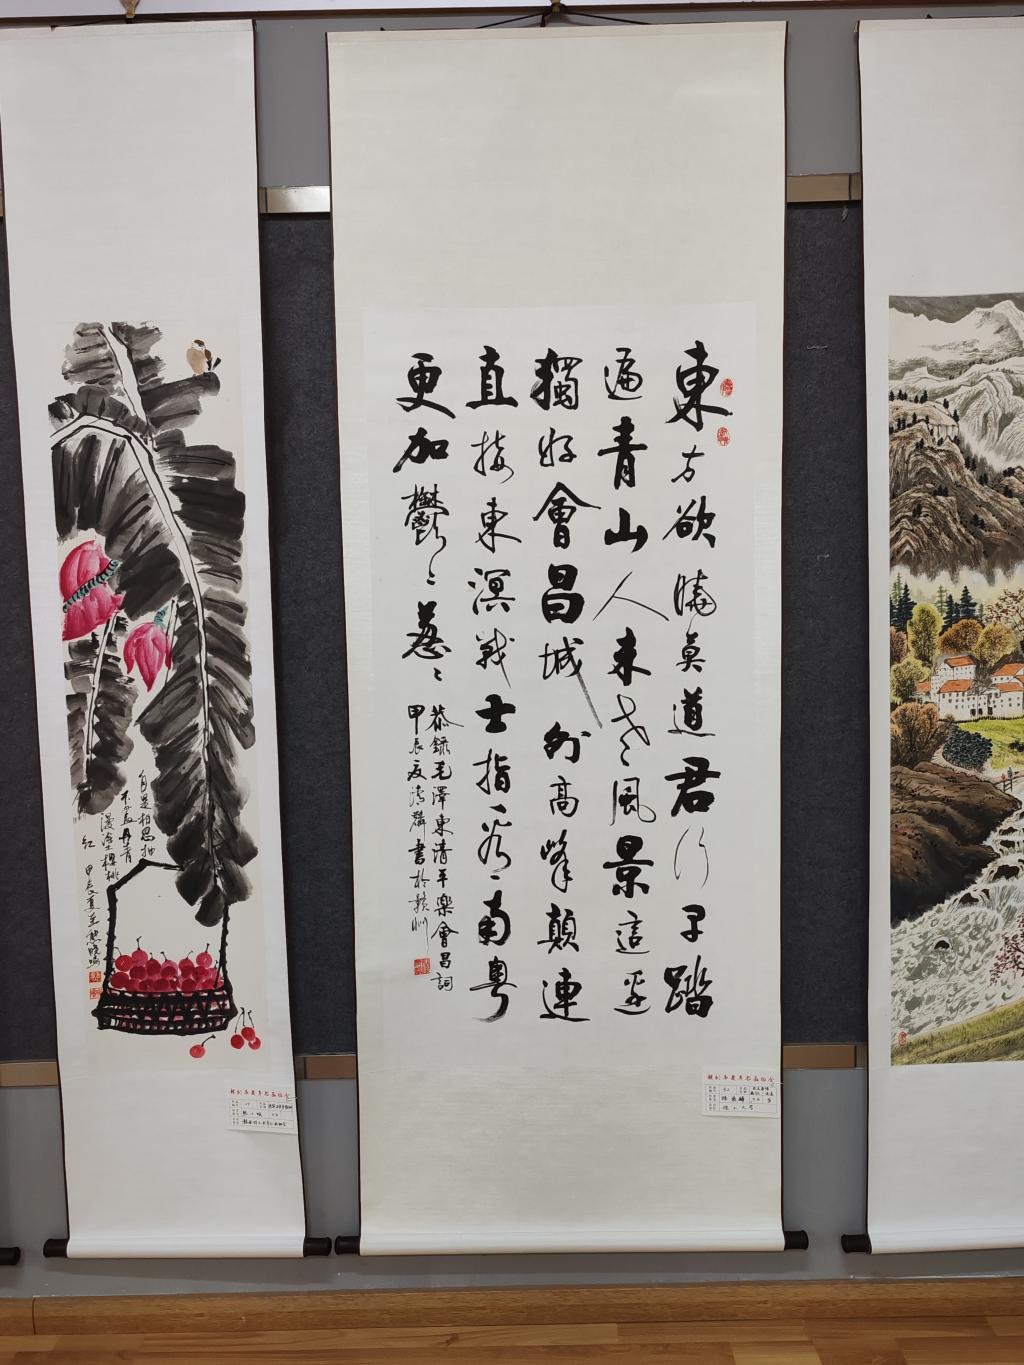 東方欲曉莫道君行早踏
遍青山人未老風景這邊
獨好會昌城外高峰顛連
直接東溟戰士指看南粵
更加鬱〻蔥〻
恭錄毛澤東清平樂會昌詞
甲辰夏 書於贛州
自是相思抽
不盡丹青
漫塗櫻桃
紅
甲辰夏